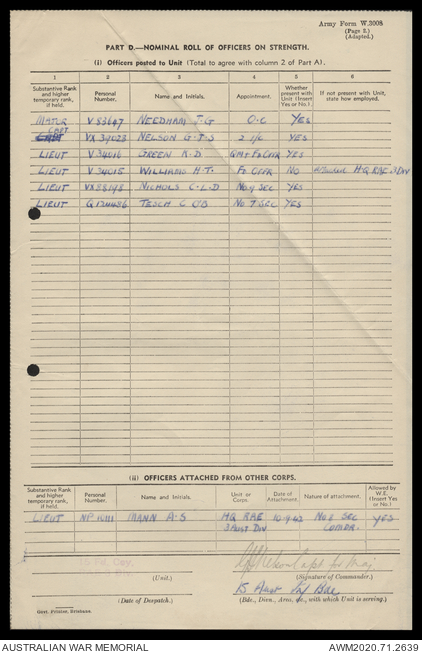 Army Form W.3008
(Page 2.)
(Adapted.)
PART D.—NOMINAL ROLL OF OFFICERS ON STRENGTH.
(i) Officers posted to Unit (Total to agree with column 2 of Part A).
1 2 3 4 5 6
Substantive Rank and higher temporary rank, if held. Personal Number. Name and Initials. Appointment. Whether present with Unit (Insert Yes or No). If not present with Unit, state how employed.
MAJOR V83647 NEEDHAM J-G O.C YES
CAPT
CAPT VX39023 NELSON G-J-S 2 I/C YES
LIEUT V34016 GREEN K-D YES
LIEUT V34015 WILLIAMS H-T. NO Attached H-Q RAE 3 DIV
LIEUT VX88198 NICHOLS C-L-D No 9 SEC YES
LIEUT TESCH C No 7 SEC YES
(ii) OFFICERS ATTACHED FROM OTHER CORPS.
Substantive Rank and higher temporary rank, if held. Personal Number. Name and Initials. Unit or Corps. Date of Attachment. Nature of attachment. Allowed by W.E. (Insert Yes or No).
LIEUT MANN A-S HQ RAE 3 AUST DIV 10-9-42 No 8 SEC COMDR. YES
Capt for Maj
(Unit.) (Signature of Commander.)
15 Aust Inf Bde
(Date of Despatch.) (Bde., Divn., Area, &c., with which Unit is serving.)
Govt. Printer, Brisbane.
AUSTRALIAN WAR MEMORIAL AWM2020.71.2639